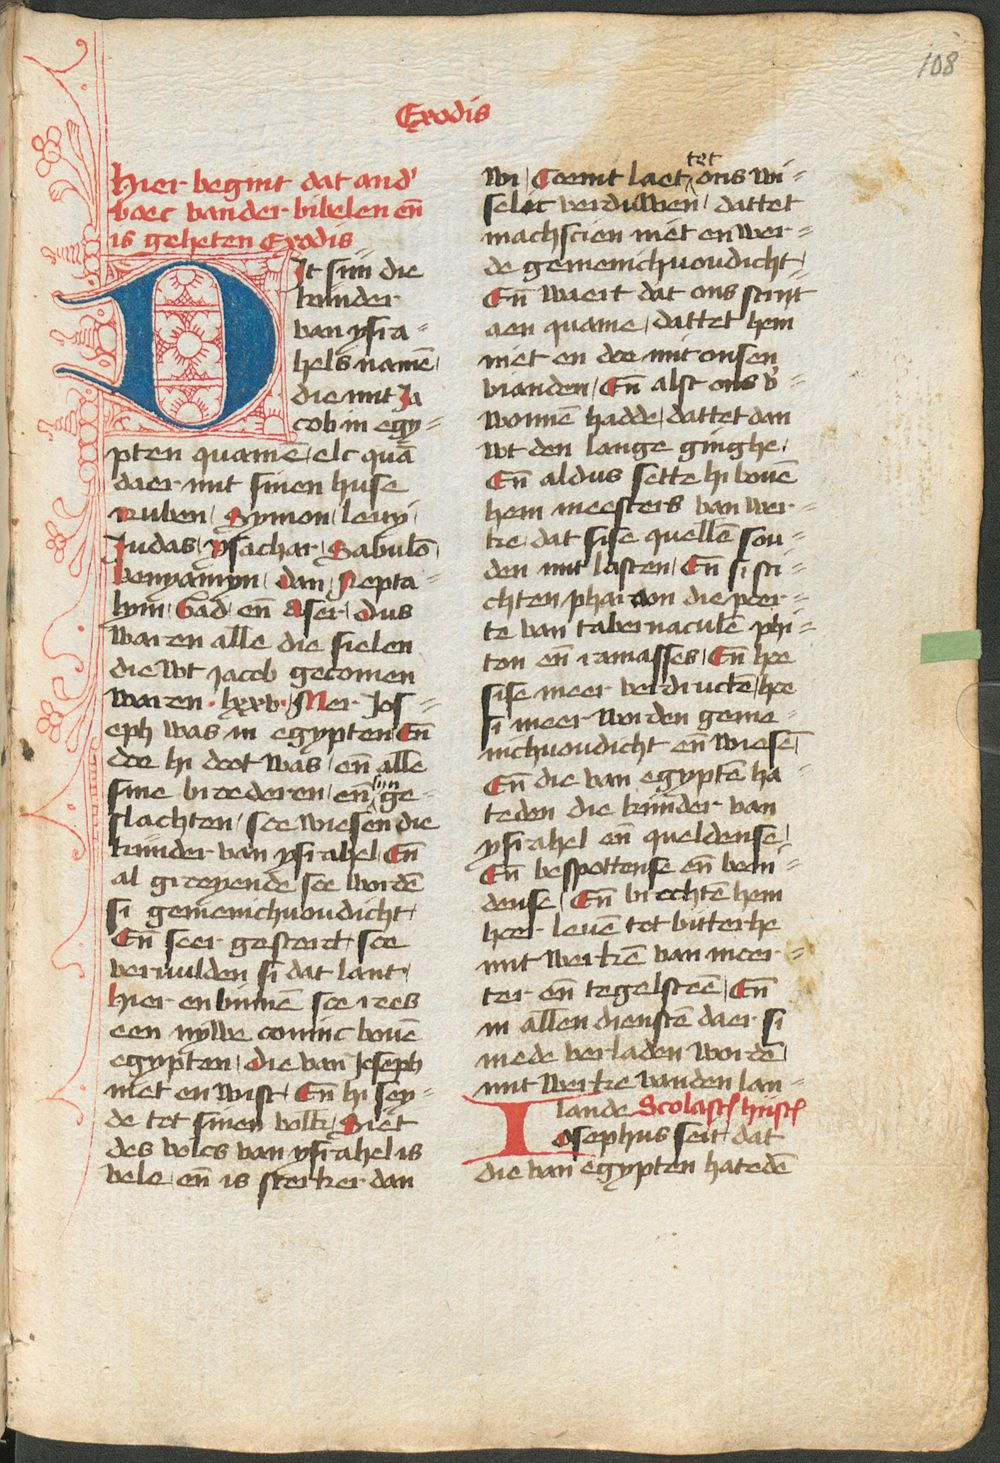 108
Exodis
Hier begint dat and'
boec van der bibelen en̄
is geheten Exodis
DIt sijn die
kinder
van ysra=
hels namē
die mit Ja
cob in egy=
pten quamē / elc quā
daer mit sinen huse
Ruben / Symon / leuy /
Judas / ysachar / Sabulō /
benyamyn / dan / Nepta=
lym / Gad / en̄ Aser / Dus
waren alle die sielen
die wt jacob gecomen
waren · lxxv · Mer Jos=
eph was in egypten En̄
doe hi doot was / en̄ alle
sine broederen / en̄ sijn ge=
slachten / soe wiesen die
kinder van ysrahel / En̄
al groeyende soe wordē
si gemenichuoudicht /
En̄ seer gesterct / soe
veruulden si dat lant /
hier en binnē soe rees
een nywe coninc bouē
egypten / die van Joseph
niet en wist / En̄ hi sey=
de tot sinen volke / Siet
des volcs van ysrahel is
vele / en̄ is sterker dan
wi / Coemt laet tot ons wi=
selic verduwen / dattet
machscien niet en wer=
de gemenichuoudicht /
En̄ waert dat ons strijt
aen quame / dattet hem
niet en doe mit onsen
vianden / En̄ alst ons v'=
wonnē hadde / dattet dan
wt den lange ginghe /
En̄ aldus sette hi bouē
hem meesters van wer=
ke / dat sise quellē sou=
den mit lasten / En̄ si sti=
chten pharaon die poer=
te van tabernaculē phi=
ton en̄ ramasses / En̄ hoe
sise meer verdructē / hoe
si meer worden geme=
nichuoudicht en̄ wiesē /
En̄ die van egyptē ha=
teden die kinder van
ysrahel en̄ queldense /
En̄ bespottense en̄ beni=
dense / En̄ brochtē hem
hoer leuē tot bitterhe
mit werkē van meer=
ter en̄ tegelstēē / En̄
in allen dienstē daer si
mede verladen wordē /
mit werke vanden lan=
lande Scolast' hist'
Josephus seit / dat
die van egypten hatedē